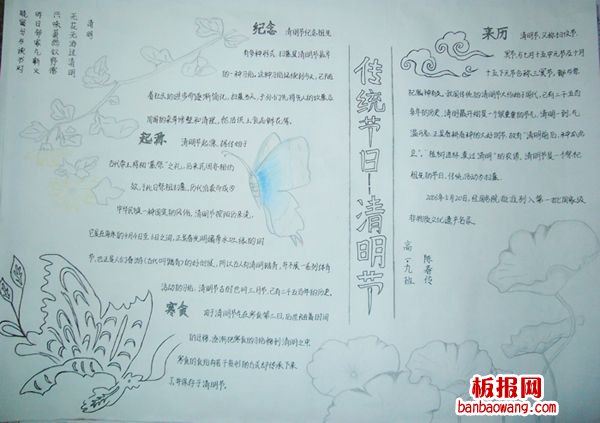 清明
无花无酒过清明
兴味萧然似野僧
昨日邻家乞新火
晓窗分与读书灯
纪念 清明节纪念祖先
有多种形式,扫墓是清明节最早
的一种习俗,这种习俗延续到今天,已随
着社会的进步而逐渐简化。扫墓当天,子孙们先将先人的坟墓及
周围的杂草修整和清理,然后供上食品鲜花等。
起源 清明节起源,据传始于
古代帝王将相“墓祭”之礼,后来民间亦相仿
效,于此日祭祖扫墓,历代沿袭而成为
中华民族一种固定的风俗。清明节按阳历来说,
它是在每年的4月4日至6日之间,正是春光明媚草木吐绿的时
节,也正是人们春游(古代叫踏青)的好时候,所以古人有清明踏青,并开展一系列体育
活动的习俗。清明节古时也叫三月节,已有二千五百年的历史。
寒食 由于清明节在寒食第二日,
的迁移,逐渐把寒食的习俗移到清明之中
寒食的食俗有若干种形制方式却传承下来
并保存于清明节。
传统节日—清明节
来历 清明节,又称扫坟节、
冥节与七月十五中元节及十月
十五下元节合称三冥节,都与祭
祀鬼神有关。我国传统的清明节大约始于周代,已有二千五百
多年的历史。清明最开始是一个很重要的节气,清明一到,气
温升高,正是春耕春种的大好时节,故有“清明前后,种瓜点
豆”。“植树造林,莫过清明”的农谚。清明节是一个祭祀
祖先的节日,传统活动为扫墓。
2006年5月20日,经国务院批准列入第一批国家级
非物质文化遗产名录。
高一九班
陈春
板报网
banbaowang.com